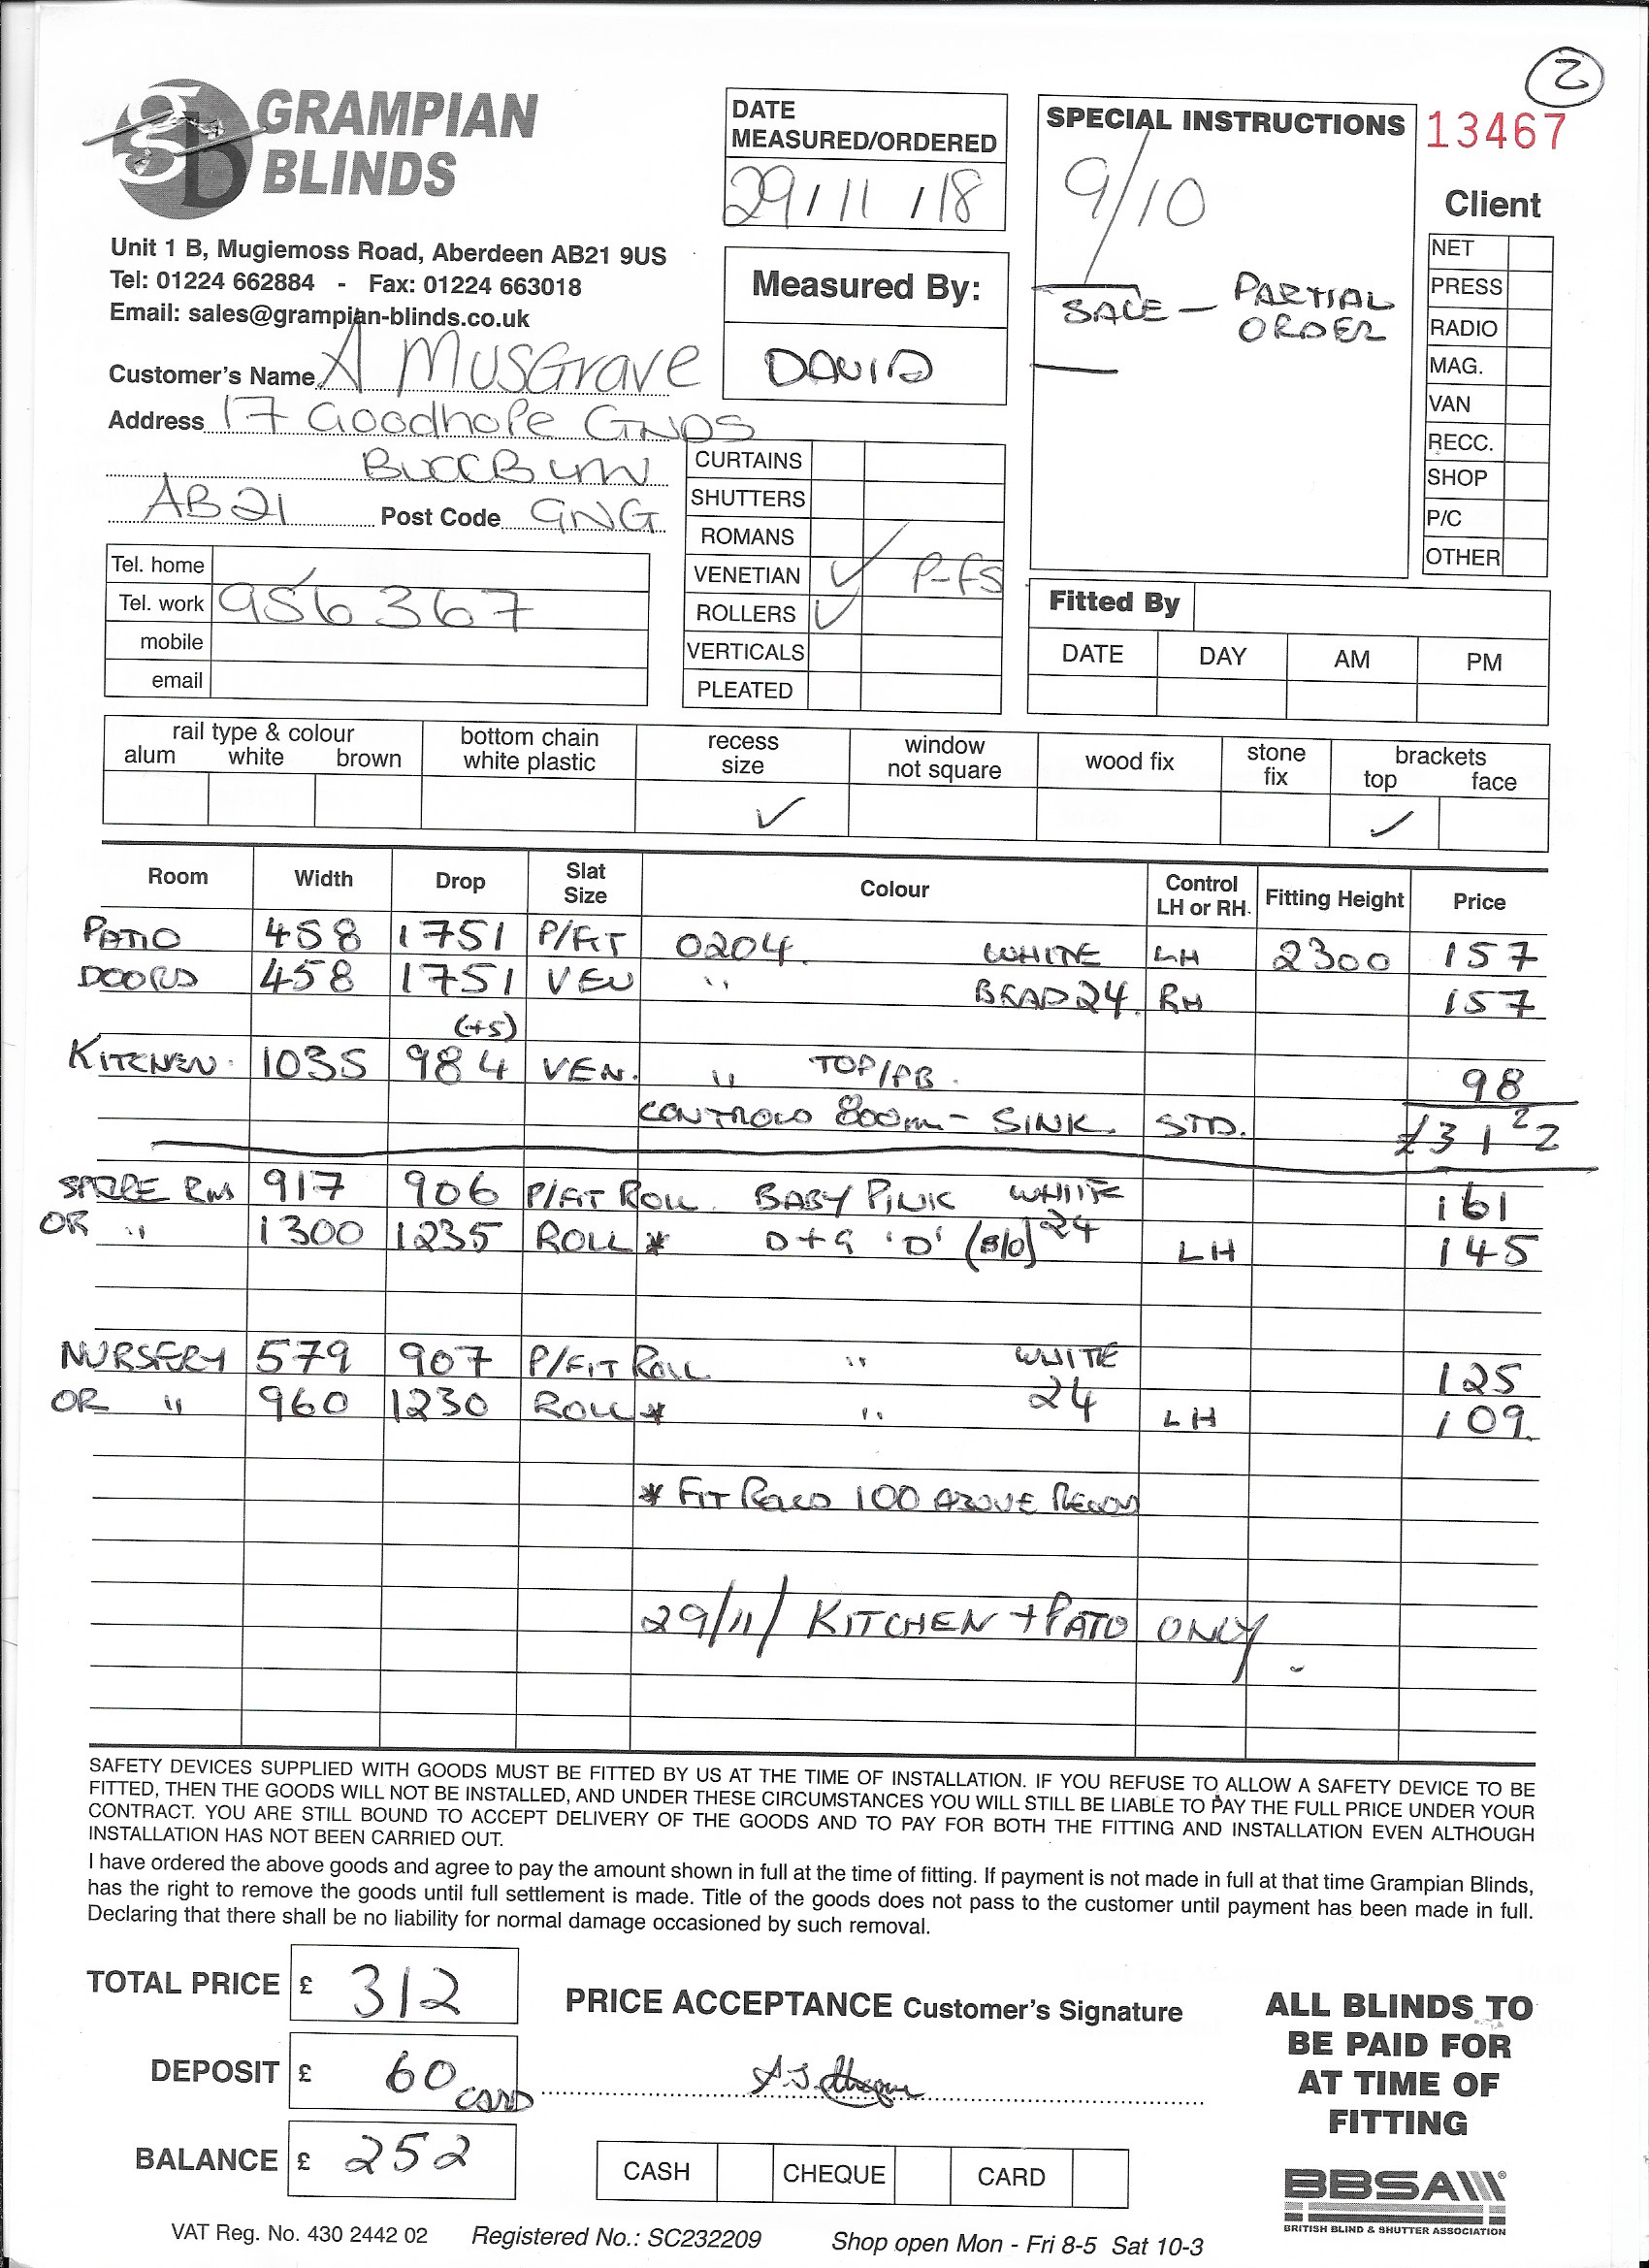 2
GRAMPIAN
BLINDS
Unit 1 B, Mugiemoss Road, Aberdeen AB21 9US
Tel: 01224 662884 - Fax: 01224 663018
Email: sales@grampian-blinds.co.uk
Customer's Name A Musgrave
Address 17 Goodhope GNDS
BUCCBURN
AB21 Post Code 9NG
Tel. home
Tel. work 956367
mobile
email
DATE
MEASURED/ORDERED
29/11/18
Measured By:
DAVID
CURTAINS
SHUTTERS
ROMANS
VENETIAN ✓ P-FS
ROLLERS ✓
VERTICALS
PLEATED
SPECIAL INSTRUCTIONS
9/10
SALE - PARTIAL
ORDER
13467
Client
NET
PRESS
RADIO
MAG.
VAN
RECC.
SHOP
P/C
OTHER
Fitted By
DATE DAY AM PM
rail type & colour
alum white brown
bottom chain
white plastic
recess
size
✓
window
not square
wood fix
stone
fix
brackets
top face
✓
Room Width Drop Slat Size Colour Control LH or RH. Fitting Height Price
PATIO 458 1751 P/FIT 0204. WHITE LH 2300 157
DOORS 458 1751 VEN " BEAD 24. RH 157
(+5)
KITCHEN. 1035 984 VEN. " TOP/PB. 98
CONTROLS 800m - SINK STD. £312
SPARE RM 917 906 P/FIT ROLL. BABY PINK WHITE 161
OR " 1300 1235 ROLL * D+G 'D' (B/O) 24 LH 145
NURSERY 579 907 P/FIT ROLL " WHITE 125
OR " 960 1230 ROLL * " 24 LH 109.
* FIT ROLLS 100 ABOVE RECESS
29/11/ KITCHEN + PATO ONLY.
SAFETY DEVICES SUPPLIED WITH GOODS MUST BE FITTED BY US AT THE TIME OF INSTALLATION. IF YOU REFUSE TO ALLOW A SAFETY DEVICE TO BE
FITTED, THEN THE GOODS WILL NOT BE INSTALLED, AND UNDER THESE CIRCUMSTANCES YOU WILL STILL BE LIABLE TO PAY THE FULL PRICE UNDER YOUR
CONTRACT. YOU ARE STILL BOUND TO ACCEPT DELIVERY OF THE GOODS AND TO PAY FOR BOTH THE FITTING AND INSTALLATION EVEN ALTHOUGH
INSTALLATION HAS NOT BEEN CARRIED OUT.
I have ordered the above goods and agree to pay the amount shown in full at the time of fitting. If payment is not made in full at that time Grampian Blinds,
has the right to remove the goods until full settlement is made. Title of the goods does not pass to the customer until payment has been made in full.
Declaring that there shall be no liability for normal damage occasioned by such removal.
TOTAL PRICE £ 312
DEPOSIT £ 60 CARD
BALANCE £ 252
PRICE ACCEPTANCE Customer's Signature
CASH CHEQUE CARD
ALL BLINDS TO
BE PAID FOR
AT TIME OF
FITTING
BBSA
BRITISH BLIND & SHUTTER ASSOCIATION
VAT Reg. No. 430 2442 02 Registered No.: SC232209 Shop open Mon - Fri 8-5 Sat 10-3